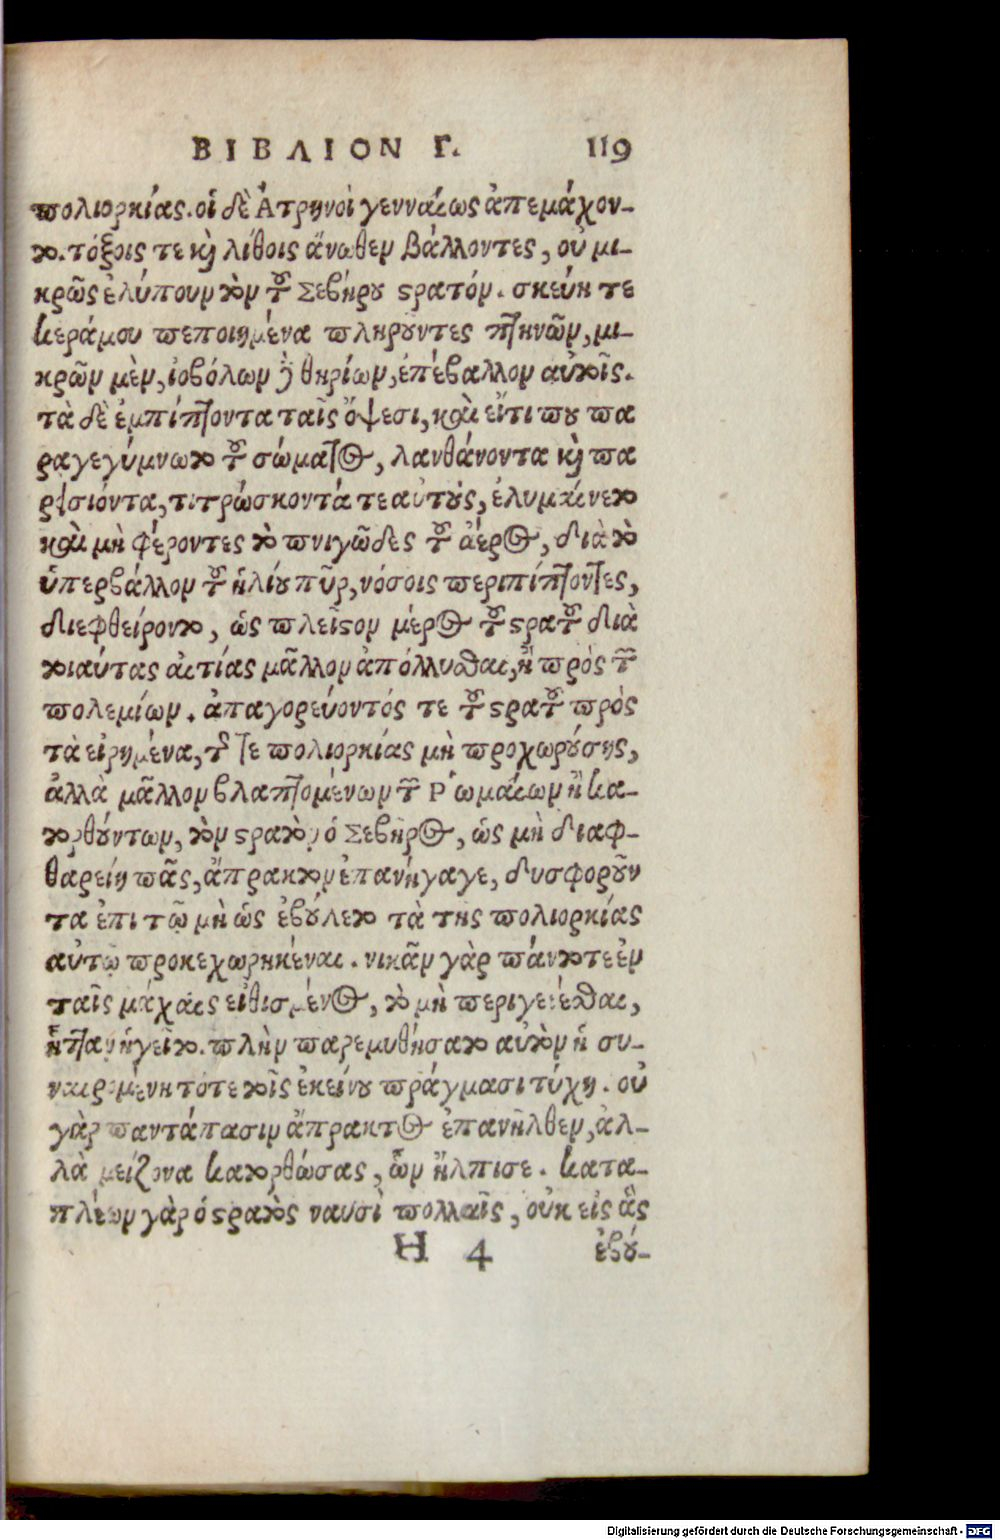 ΒΙΒΛΙΟΝ Γ. 119
πολιορκίας. οἱ δὲ Ἀτρηνοὶ γενναίως ἀπεμάχον-
το. τόξοις τε καὶ λίθοις ἄνωθεν βάλλοντες, οὐ μι-
κρῶς ἐλύπουν τὸν τοῦ Σεβήρου στρατόν. σκεύη τε
κεράμου πεποιημένα πληροῦντες πτηνῶν, μι-
κρῶν μὲν, ἰοβόλων δὲ θηρίων, ἐπέβαλλον αὐτοῖς.
τὰ δὲ ἐμπίπτοντα ταῖς ὄψεσι, καὶ εἴτι που πα
ραγεγύμνωτο τοῦ σώματος, λανθάνοντα καὶ πα
ρεισιόντα, τιτρώσκοντά τε αὐτοὺς, ἐλυμαίνετο
καὶ μὴ φέροντες τὸ πνιγῶδες τοῦ ἀέρος, διὰ τὸ
ὑπερβάλλον τοῦ ἡλίου πῦρ, νόσοις περιπίπτοντες,
διεφθείροντο, ὡς πλεῖστον μέρος τοῦ στρατοῦ διὰ
τοιαύτας αἰτίας μᾶλλον ἀπόλλυσθαι, ἢ πρὸς τῶν
πολεμίων. ἀπαγορεύοντός τε τοῦ στρατοῦ πρὸς
τὰ εἰρημένα, τῆς τε πολιορκίας μὴ προχωρούσης,
ἀλλὰ μᾶλλον βλαπτομένων τῶν Ῥωμαίων ἢ κα-
τορθούντων, τὸν στρατὸν ὁ Σεβῆρος, ὡς μὴ διαφ-
θαρείη πᾶς, ἄπρακτον ἐπανήγαγε, δυσφοροῦν
τα ἐπι τῷ μὴ ὡς ἐβούλετο τὰ της πολιορκίας
αὐτῷ προκεχωρηκέναι. νικᾶν γὰρ πάντοτε ἐν
ταῖς μάχαις εἰθισμένος, τὸ μὴ περιγενέσθαι,
ἧτταν ἡγεῖτο. πλὴν παρεμυθήσατο αὐτὸν ἡ συ-
ναιρομένη τότε τοῖς ἐκείνου πράγμασι τύχη. οὐ
γὰρ παντάπασιν ἄπρακτος ἐπανῆλθεν, ἀλ-
λὰ μείζονα κατορθώσας, ὧν ἤλπισε. κατα-
πλέων γὰρ ὁ στρατὸς ναυσὶ πολλαῖς, οὐκ εἰς ἃς
Η 4 ἐβού-
Digitalisierung gefördert durch die Deutsche Forschungsgemeinschaft - DFG